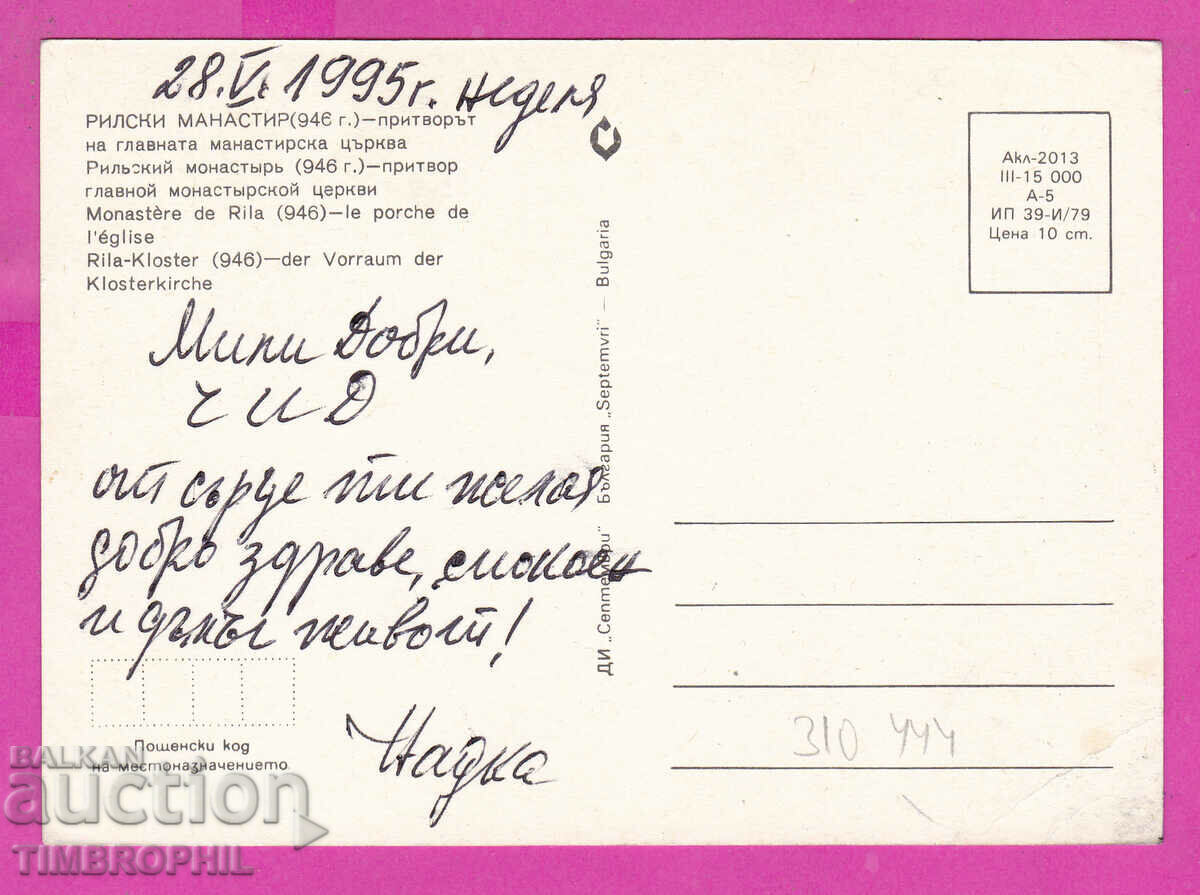 28.V. 1995г. неделя
РИЛСКИ МАНАСТИР(946 г.)—притворът
на главната манастирска църква
Рильский монастырь (946 г.)—притвор
главной монастырской церкви
Monastère de Rila (946)—le porche de
l'église
Rila-Kloster (946)—der Vorraum der
Klosterkirche
Мили Добри,
Ч И Д
от сърце ти желая
добро здраве, спокоен
и дълъг живот!
Надка
Пощенски код
на местоназначението
ДИ „Септември" България „Septemvri" — Bulgaria
Акл-2013
III-15 000
А-5
ИП 39-И/79
Цена 10 ст.
310 444
BALKAN
auction
TIMBROPHIL